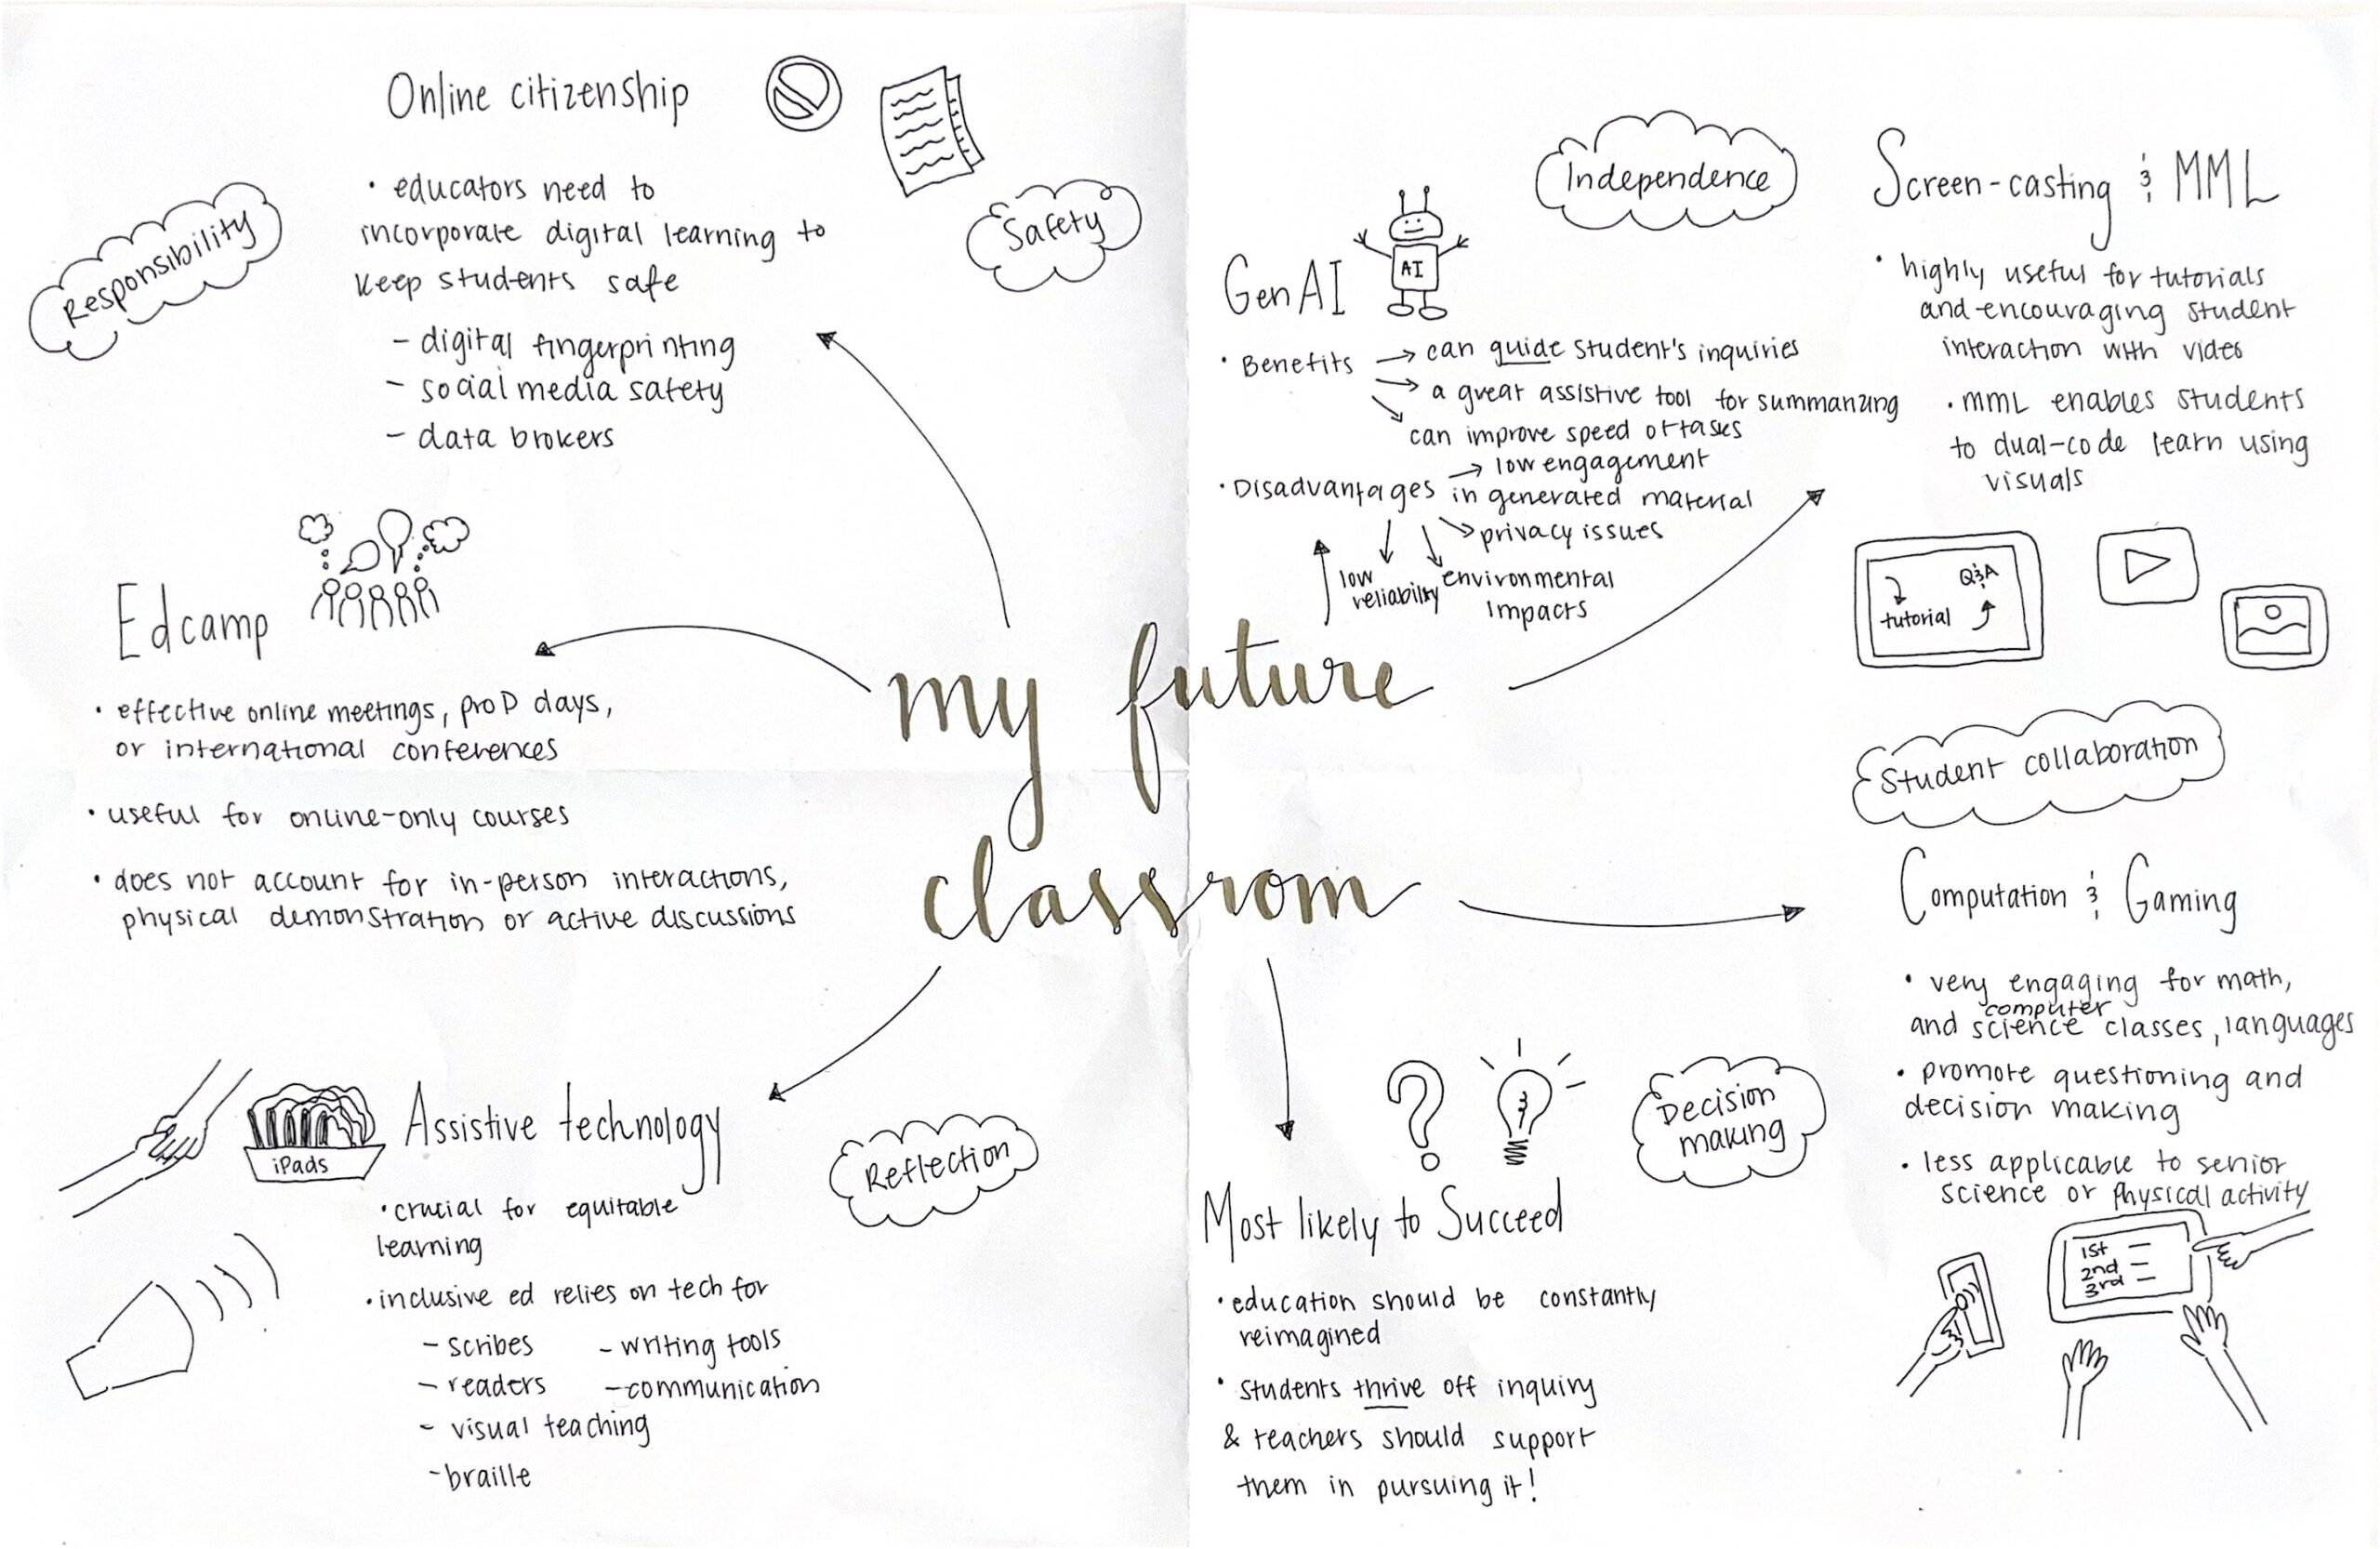 Online citizenship
• educators need to
incorporate digital learning to
keep students safe
- digital fingerprinting
- social media safety
- data brokers
Responsibility
Safety
Edcamp
• effective online meetings, pro D days,
or international conferences
• useful for online-only courses
• does not account for in-person interactions,
physical demonstration or active discussions
my future
classrom
iPads
Assistive technology
• crucial for equitable
learning
• inclusive ed relies on tech for
- scribes
- readers
- visual teaching
- braille
- writing tools
- communication
Reflection
Independence
GenAI
AI
• Benefits → can guide student's inquiries
→ a great assistive tool for summarizing
↘ can improve speed of tasks
• Disadvantages → low engagement
in generated material
↘ privacy issues
↓ low
reliability
↘ environmental
impacts
Screen-casting & MML
• highly useful for tutorials
and encouraging student
interaction with video
• MML enables students
to dual-code learn using
visuals
tutorial
Q&A
Student collaboration
Computation & Gaming
• very engaging for math,
computer
and science classes, languages
• promote questioning and
decision making
• less applicable to senior
science or physical activity
1st -
2nd -
3rd -
Decision
making
Most likely to Succeed
• education should be constantly
reimagined
• students thrive off inquiry
& teachers should support
them in pursuing it!